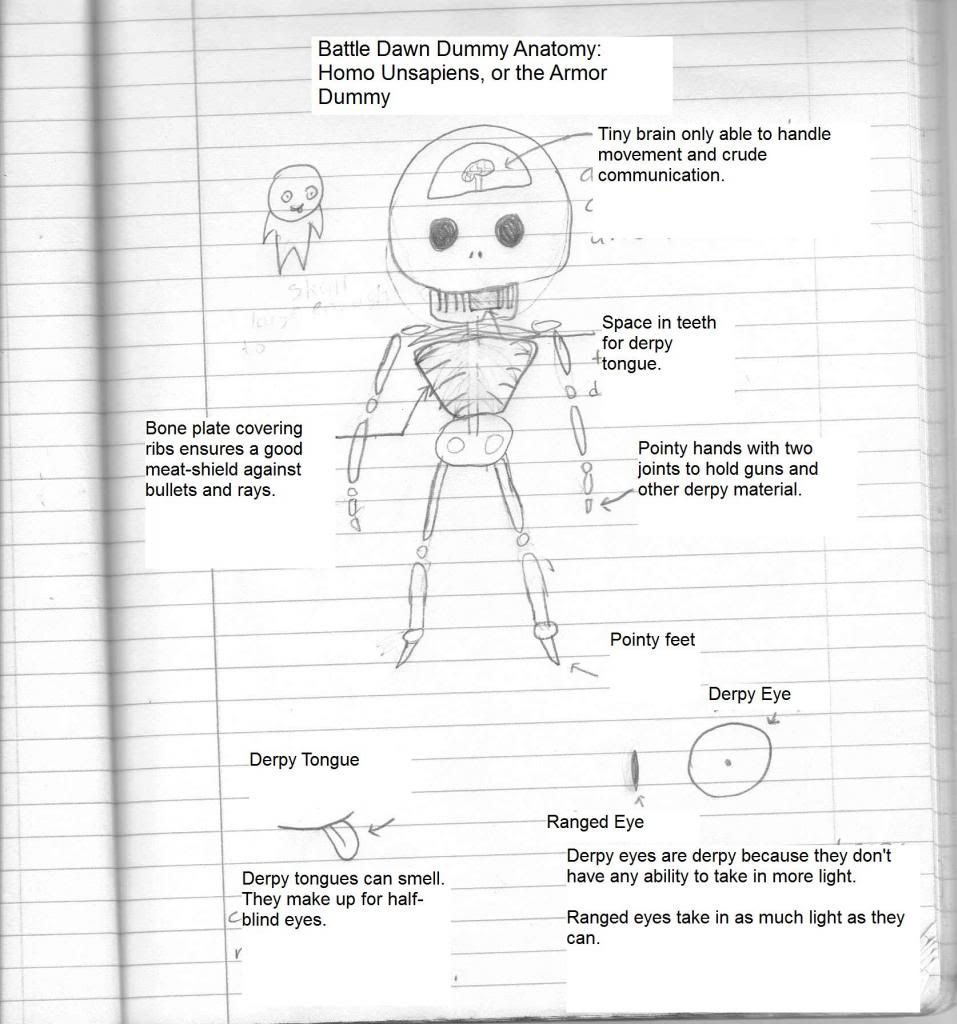 Battle Dawn Dummy Anatomy:
Homo Unsapiens, or the Armor
Dummy
Tiny brain only able to handle
movement and crude
communication.
Space in teeth
for derpy
tongue.
Bone plate covering
ribs ensures a good
meat-shield against
bullets and rays.
Pointy hands with two
joints to hold guns and
other derpy material.
Pointy feet
Derpy Eye
Derpy Tongue
Ranged Eye
Derpy tongues can smell.
They make up for half-
blind eyes.
Derpy eyes are derpy because they don't
have any ability to take in more light.
Ranged eyes take in as much light as they
can.